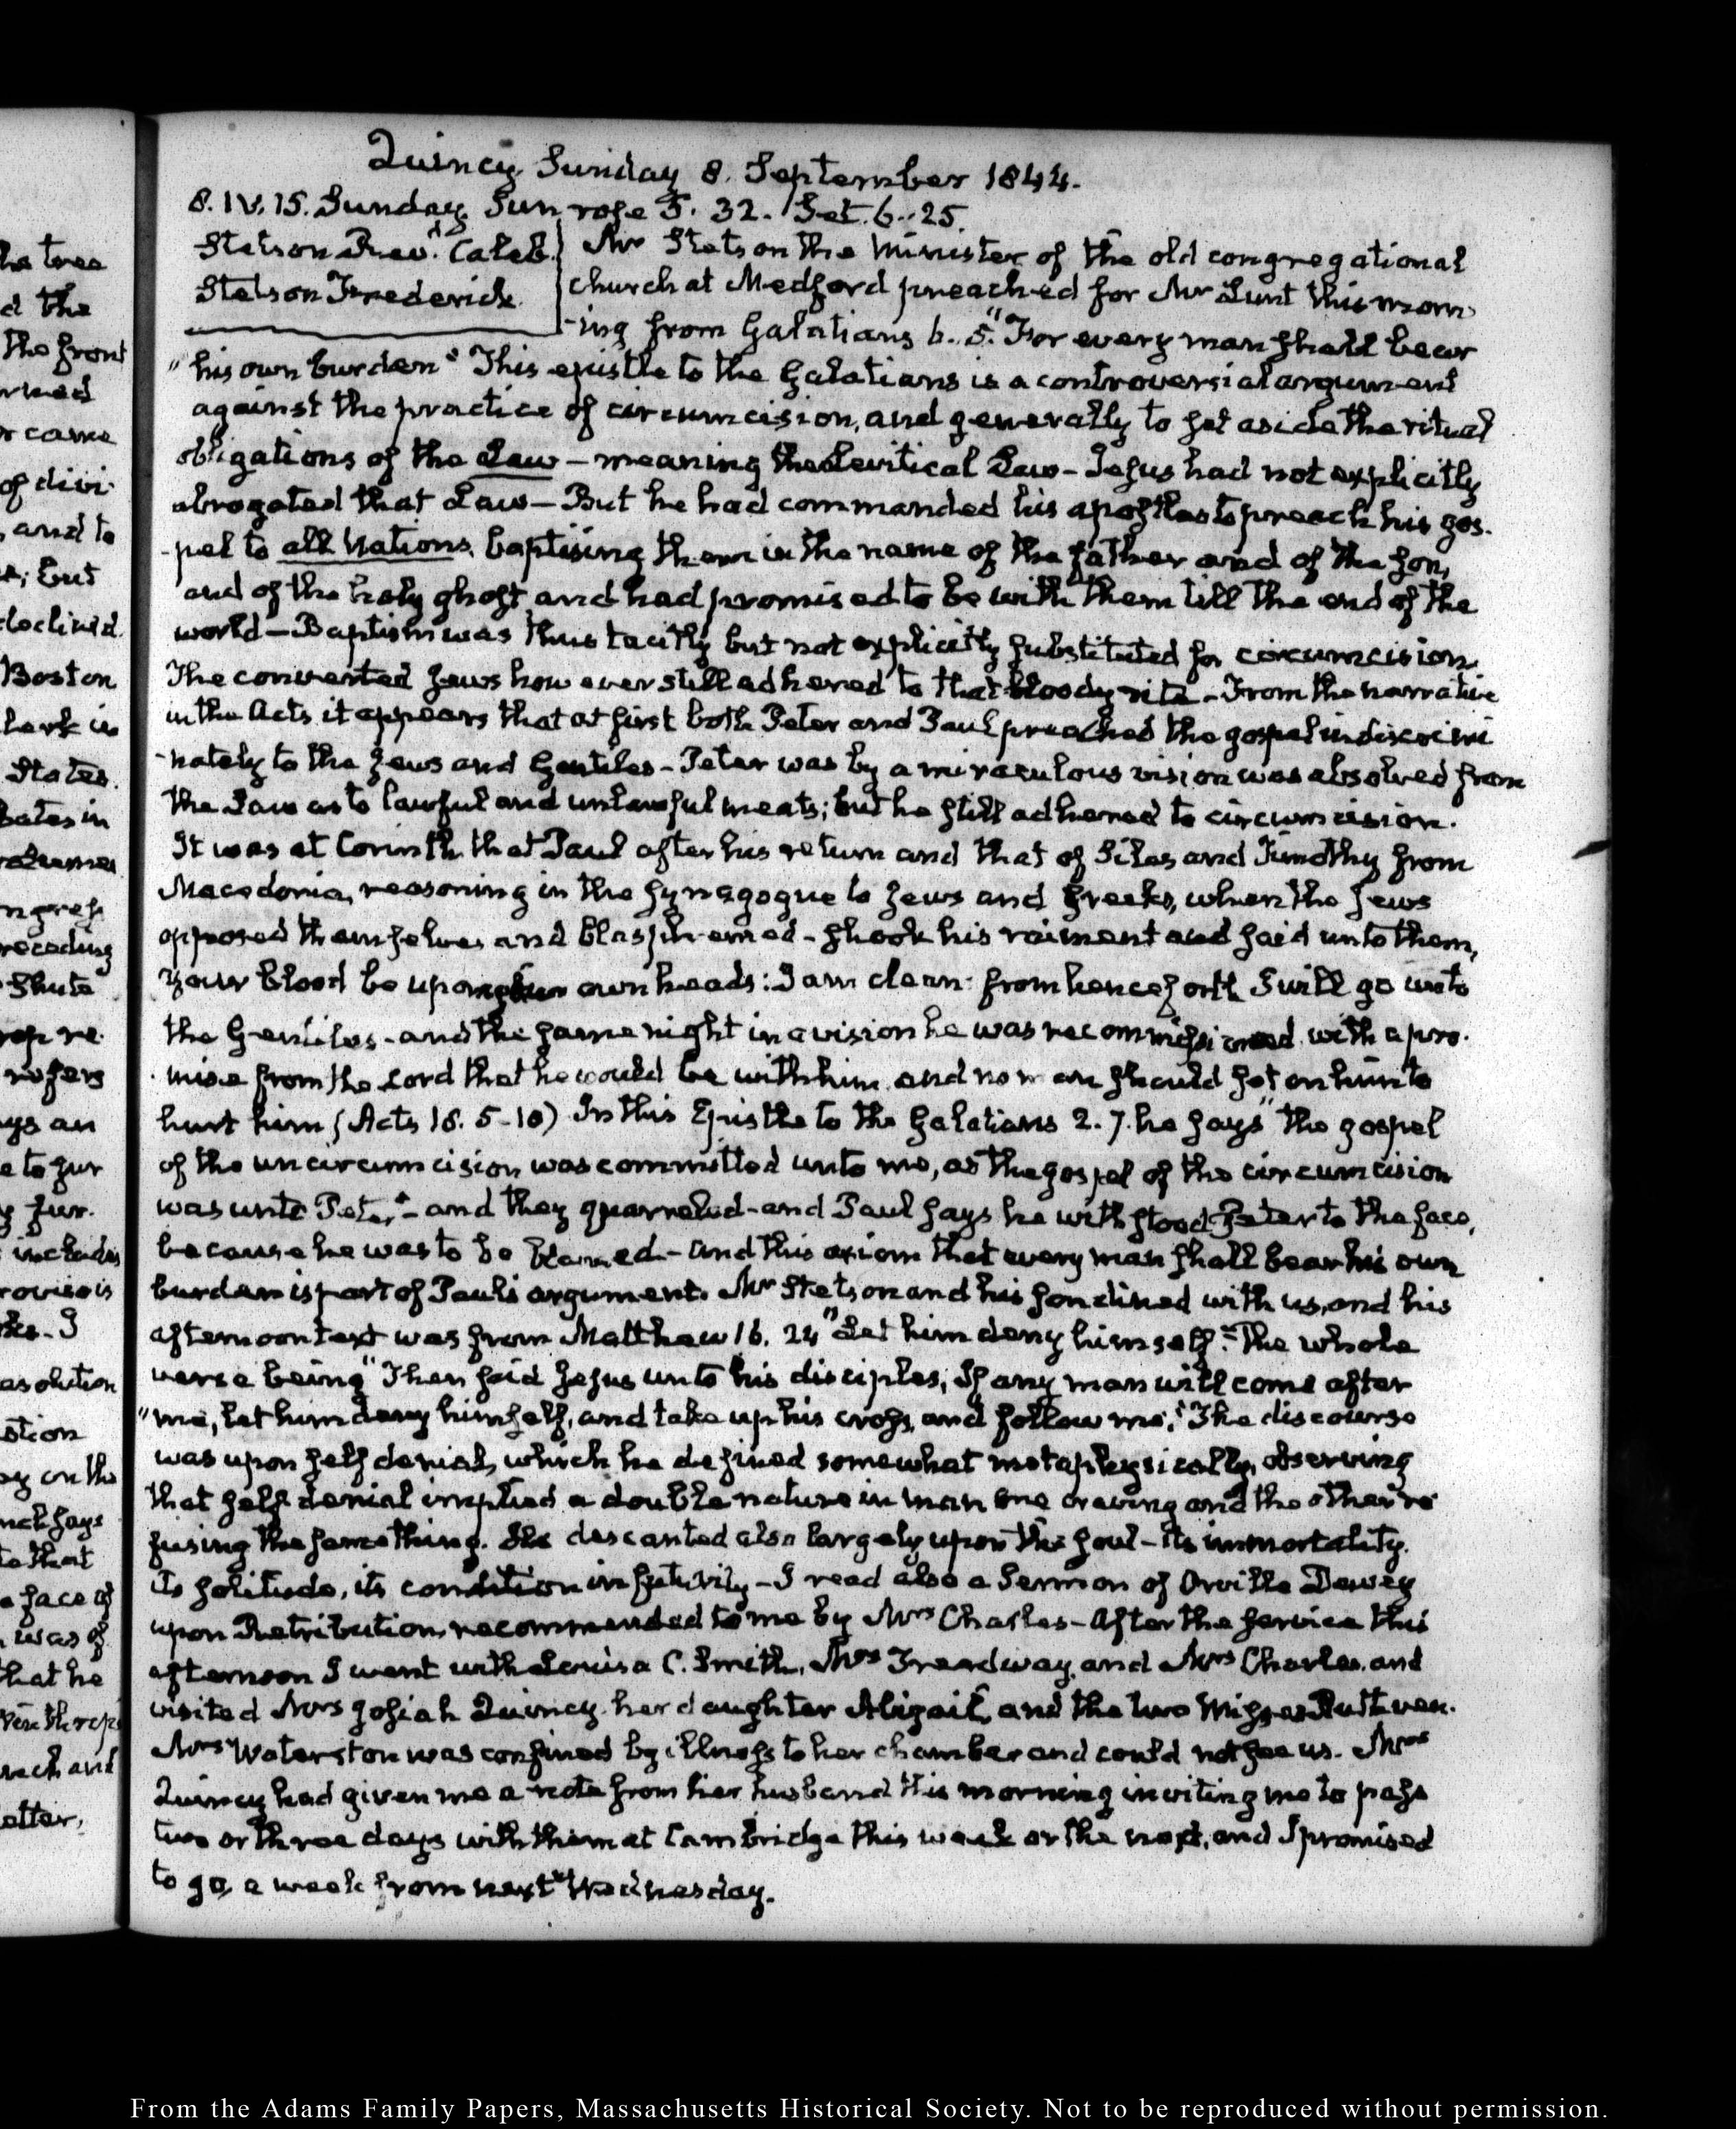 Quincy Sunday 8. September 1844.
8. IV. 15. Sunday. Sun rose 5. 32. Set. 6..25.
Stetson Revd. Caleb.
Stetson Frederick.
Mr Stetson the Minister of the old congregational
church at Medford preached for Mr Lunt this morn-
-ing from Galatians 6..5. "For every man shall bear
"his own burden" This epistle to the Galatians is a controversial argument
against the practice of circumcision, and generally to set aside the ritual
obligations of the Law – meaning the Levitical Law – Jesus had not explicitly
abrogated that Law – But he had commanded his apostles to preach his gos-
-pel to all Nations, baptising them in the name of the father and of the son,
and of the holy ghost, and had promised to be with them till the end of the
world – Baptism was thus tacitly but not explicitly substituted for circumcision.
The converted Jews however still adhered to that bloody rite – From the narrative
in the Acts it appears that at first both Peter and Paul preached the gospel indiscrimi
-nately to the Jews and Gentiles – Peter was by a miraculous vision was absolved from
the Law as to lawful and unlawful meats; but he still adhered to circumcision.
It was at Corinth that Paul after his return and that of Silas and Timothy from
Macedonia, reasoning in the Synagogue to Jews and Greeks, when the Jews
opposed themselves and blasphemed – shook his raiment and said unto them,
Your blood be upon your own heads: I am clean: from henceforth I will go unto
the Gentiles – and the same night in a vision he was recommissioned with a pro-
-mise from the Lord that he would be with him and no man should set on him to
hurt him (Acts 18. 5-10) In this Epistle to the Galatians 2. 7. he says "the gospel
of the uncircumcision was committed unto me, as the gospel of the circumcision
was unto Peter" – and they quarreled – and Paul says he withstood Peter to the face,
because he was to be blamed – and this axiom that every man shall bear his own
burden is part of Paul's argument. Mr Stetson and his son dined with us, and his
afternoon text was from Matthew 16. 24 "Let him deny himself." The whole
verse being "Then said Jesus unto his disciples, If any man will come after
"me, let him deny himself, and take up his cross, and follow me." The discourse
was upon self denial, which he defined somewhat metaphysically, observing
that self denial implied a double nature in man one craving and the other re
fusing the same thing. He descanted also largely upon the soul – its immortality,
its solitude, its condition in futurity – I read also a Sermon of Orville Dewey
upon Retribution, recommended to me by Mrs Charles – After the service this
afternoon I went with Louisa C. Smith, Mrs Treadway, and Mrs Charles, and
visited Mrs Josiah Quincy, her daughter Abigail, and the two Misses Ruthven.
Mrs Waterston was confined by illness to her chamber and could not see us. Mrs
Quincy had given me a note from her husband this morning inviting me to pass
two or three days with them at Cambridge this week or the next, and I promised
to go, a week from next Wednesday.
From the Adams Family Papers, Massachusetts Historical Society. Not to be reproduced without permission.